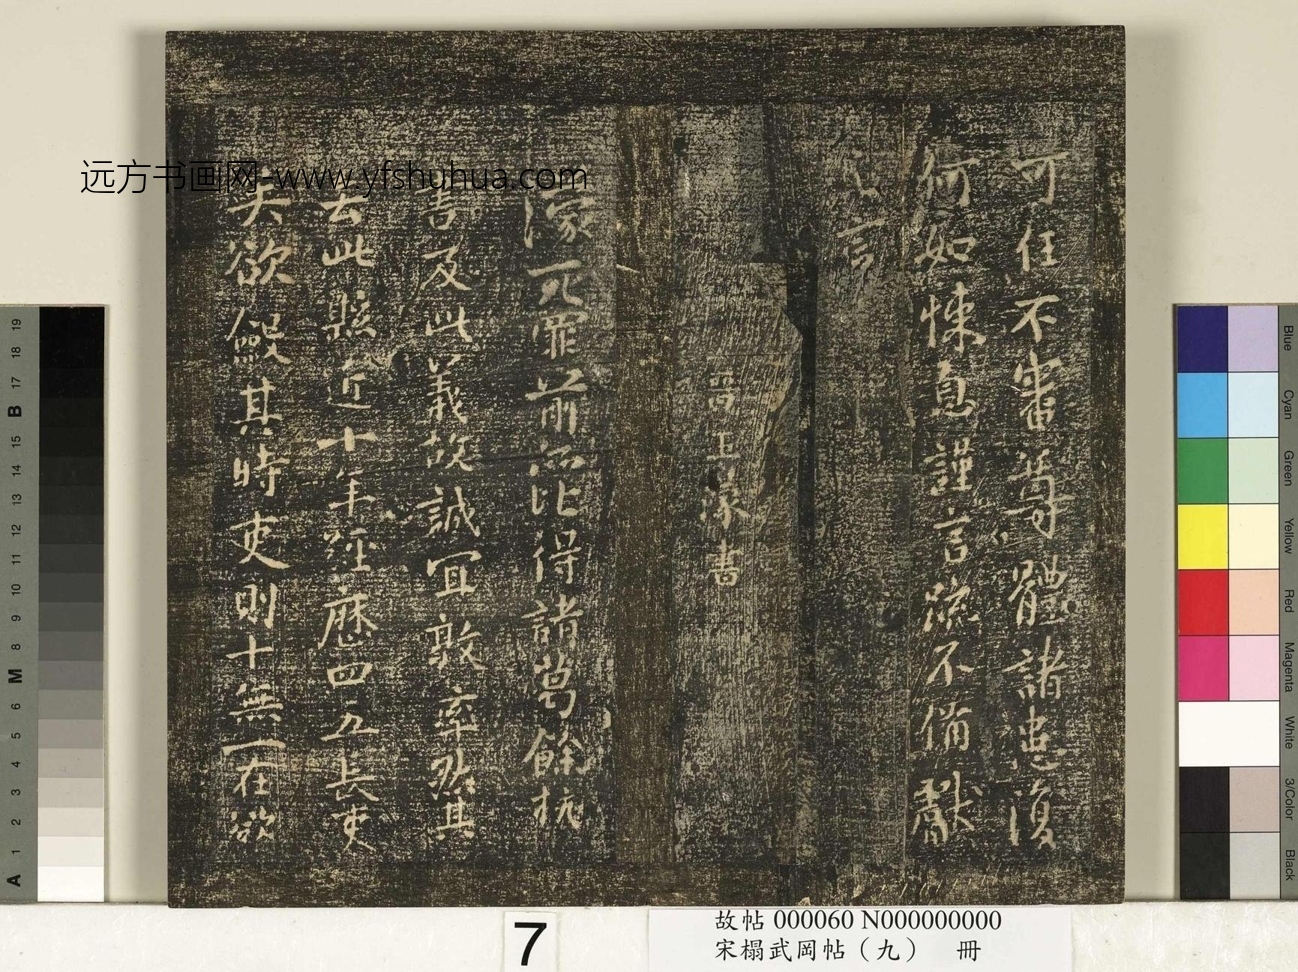 可往不審尊體諸患復
何如悚息謹言疏不備獻
之言
晉王濛書
濛死罪前比得諸葛餘杭
書及此義故誠宜敦率然其
去此縣近十年經歷四五長吏
矣欲假其時吏則十無一在欲
远方书画网-www.yfshuhua.com
7
故帖 000060 N000000000
宋榻武岡帖（九） 冊
19
18
17
B
15
14
13
12
11
10
9
8
M
6
5
4
3
2
1
A
Blue
Cyan
Green
Yellow
Red
Magenta
White
3/Color
Black